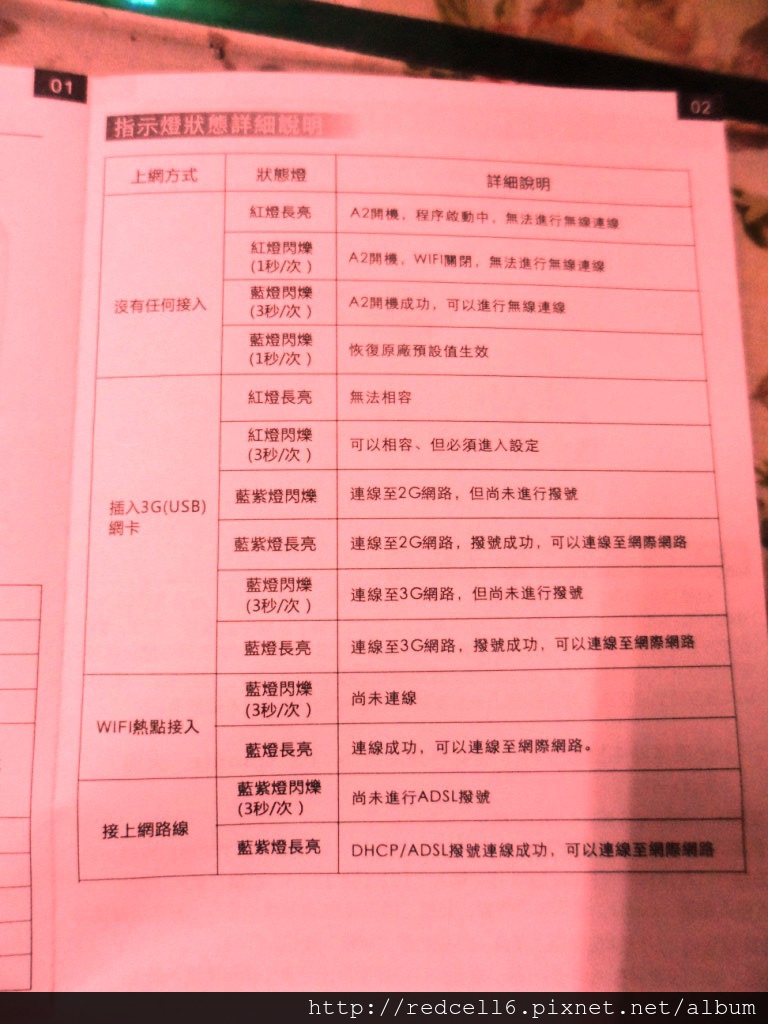 01
02
指示燈狀態詳細說明
上網方式 狀態燈 詳細說明
沒有任何接入
紅燈長亮 A2開機，程序啟動中，無法進行無線連線
紅燈閃爍
(1秒/次) A2開機，WIFI關閉，無法進行無線連線
藍燈閃爍
(3秒/次) A2開機成功，可以進行無線連線
藍燈閃爍
(1秒/次) 恢復原廠預設值生效
插入3G(USB)
網卡
紅燈長亮 無法相容
紅燈閃爍
(3秒/次) 可以相容、但必須進入設定
藍紫燈閃爍 連線至2G網路，但尚未進行撥號
藍紫燈長亮 連線至2G網路，撥號成功，可以連線至網際網路
藍燈閃爍
(3秒/次) 連線至3G網路，但尚未進行撥號
藍燈長亮 連線至3G網路，撥號成功，可以連線至網際網路
WIFI熱點接入
藍燈閃爍
(3秒/次) 尚未連線
藍燈長亮 連線成功，可以連線至網際網路。
接上網路線
藍紫燈閃爍
(3秒/次) 尚未進行ADSL撥號
藍紫燈長亮 DHCP/ADSL撥號連線成功，可以連線至網際網路
http://redcell6.pixnet.net/album